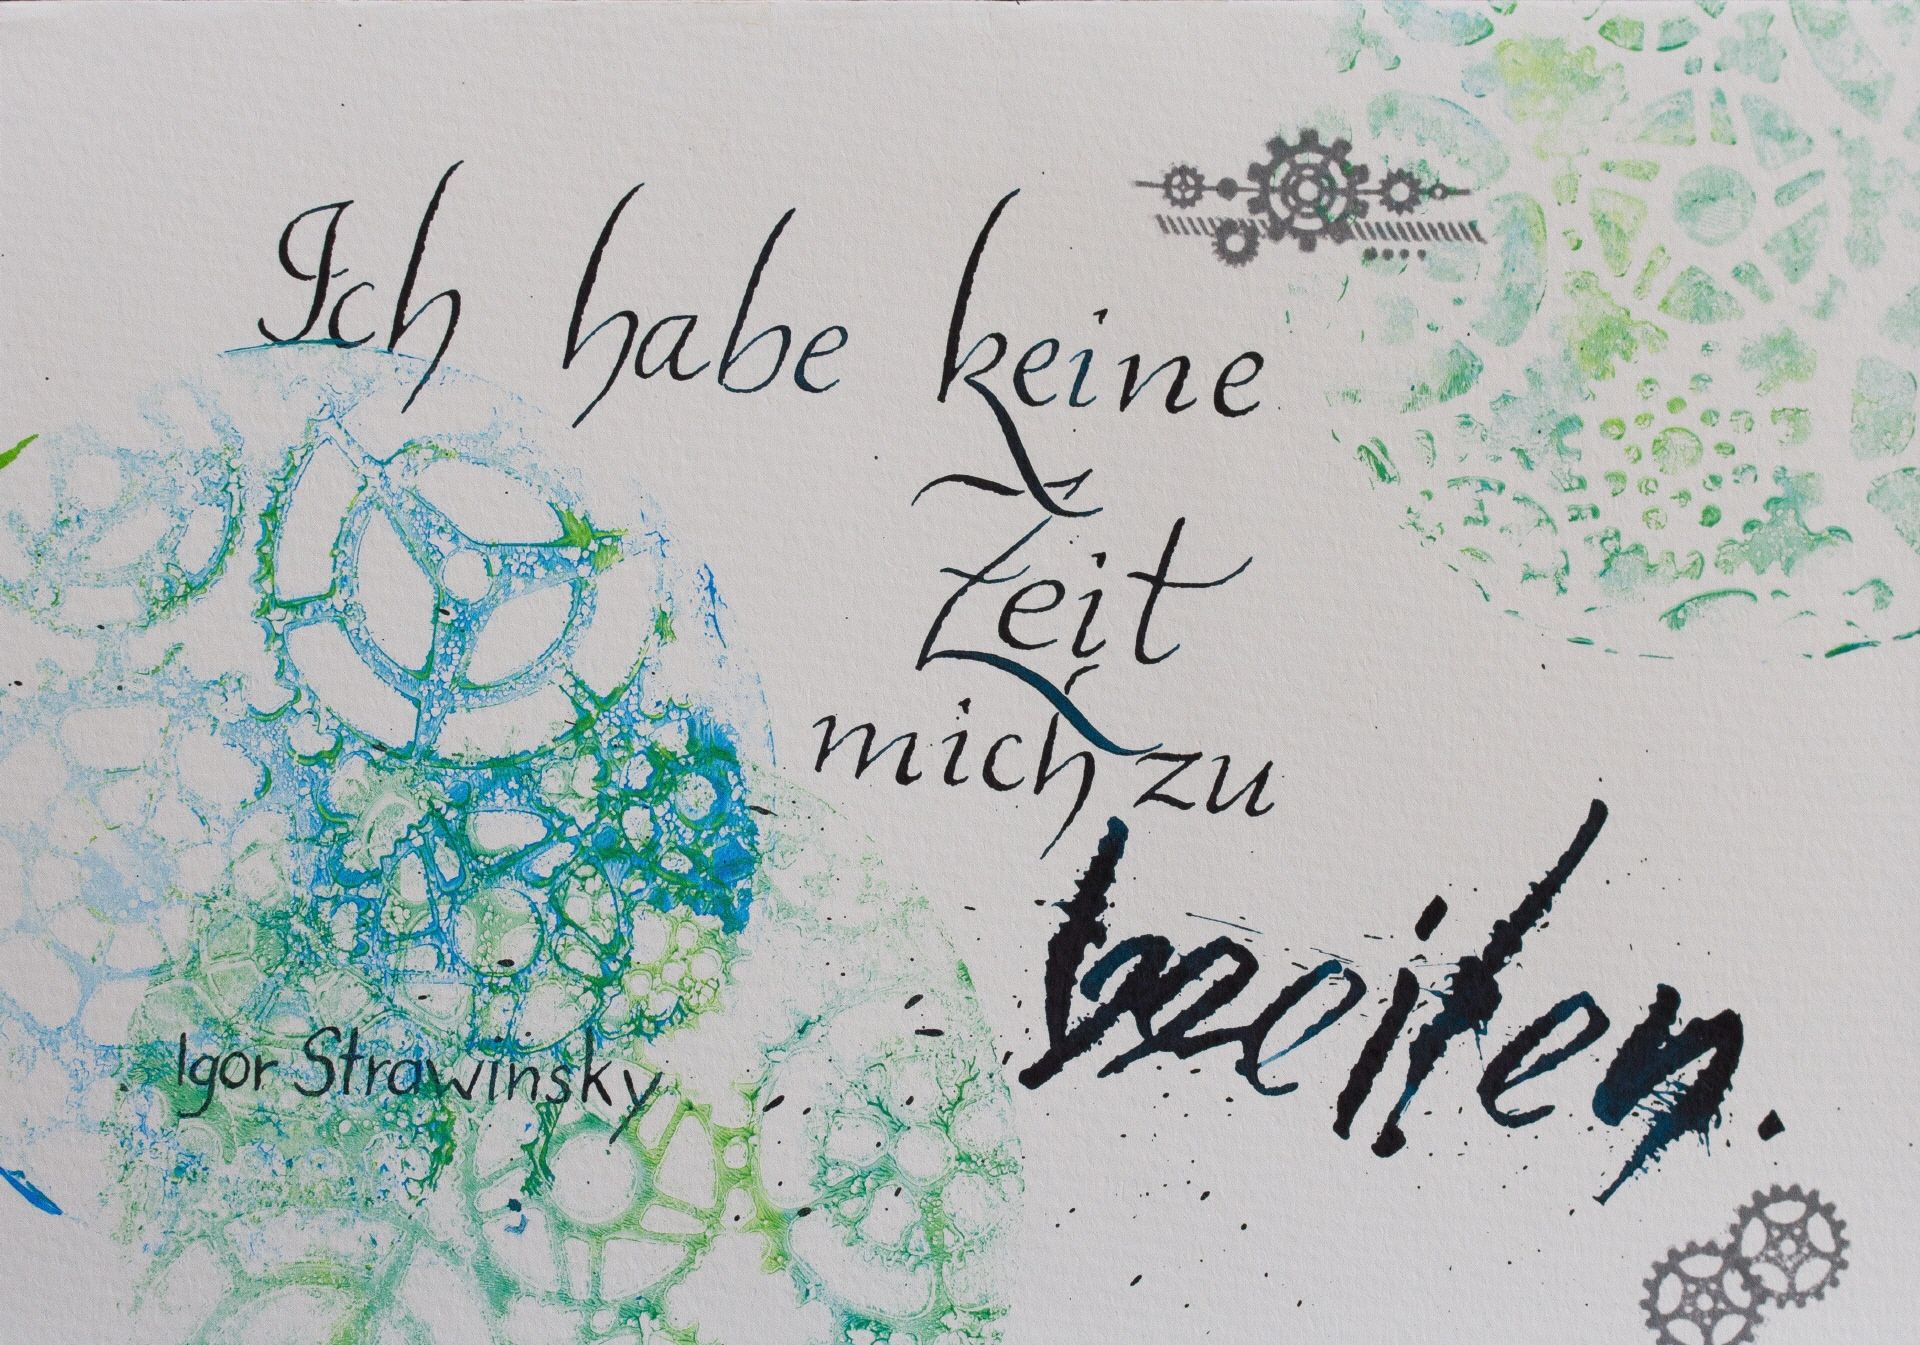 Ich habe keine
Zeit
mich zu
beeilen.
Igor Strawinsky